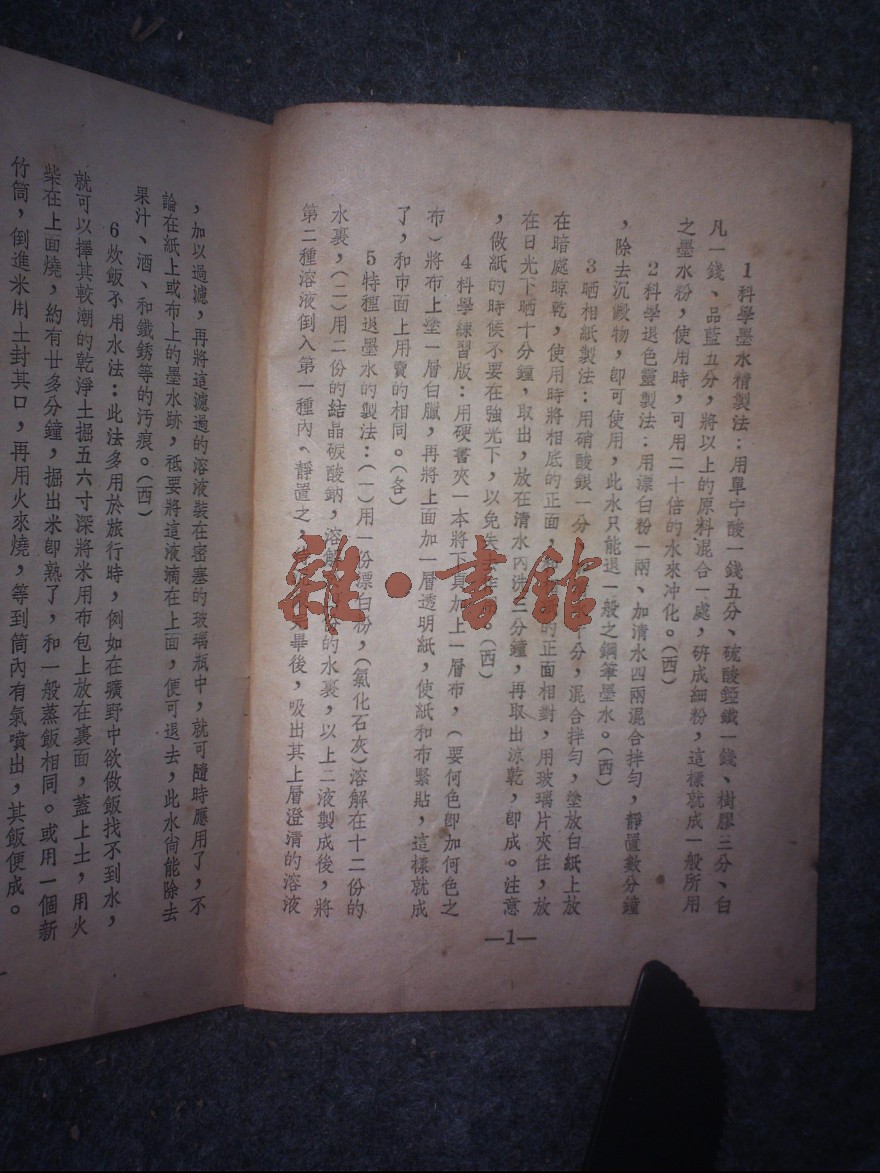 1科學墨水精製法：用單宁酸一錢五分、硫酸錏鐵一錢、樹膠三分、白
凡一錢、品藍五分，將以上的原料混合一處，硏成細粉，這樣就成一般所用
之墨水粉，使用時，可用二十倍的水來冲化。(西)
2科學退色靈製法：用漂白粉一兩、加清水四兩混合拌勻，靜置數分鐘
，除去沉澱物，卽可使用，此水只能退一般之鋼筆墨水。(西)
3晒相紙製法：用硝酸銀一分 十分，混合拌勻，塗放白紙上放
在暗處晾乾，使用時將相底的正面， 的正面相對，用玻璃片夾住，放
在日光下晒十分鐘，取出，放在清水內洗三分鐘，再取出涼乾，卽成。注意
，做紙的時候不要在強光下，以免失 (西)
4科學練習版：用硬書夾一本將下頁加上一層布，(要何色卽加何色之
布)將布上塗一層白臘，再將上面加一層透明紙，使紙和布緊貼，這樣就成
了，和市面上用賣的相同。(各)
5特種退墨水的製法：(一)用一份漂白粉，(氯化石灰)溶解在十二份的
水裹，(二)用二份的結晶碳酸鈉，溶解 份的水裹，以上二液製成後，將
第二種溶液倒入第一種內、靜置之， 畢後，吸出其上層澄清的溶液
—1—
雜·書館
，加以過濾，再將這濾過的溶液裝在密塞的玻璃瓶中，就可隨時應用了，不
論在紙上或布上的墨水跡，祗要將這液滴在上面，便可退去，此水尙能除去
果汁、酒、和鐵銹等的汚痕。(西)
6炊飯不用水法：此法多用於旅行時，例如在曠野中欲做飯找不到水，
就可以擇其較潮的乾淨土掘五六寸深將米用布包上放在裏面，蓋上土，用火
柴在上面燒，約有廿多分鐘，掘出米卽熟了，和一般蒸飯相同。或用一個新
竹筒，倒進米用土封其口，再用火來燒，等到筒內有氣噴出，其飯便成。